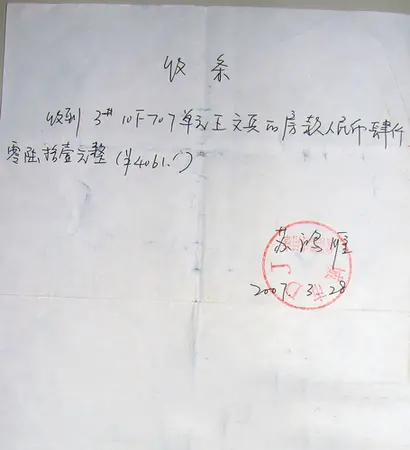 收条
收到3#10下707单元王文兵的房款人民币肆仟
零陆拾壹元整(¥4061.)
苏鸿雁
2007.3.28